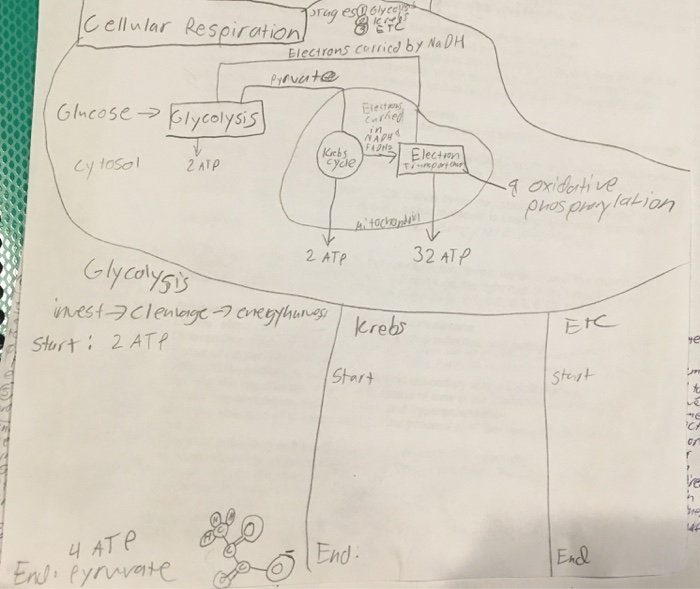 Cellular Respiration
Stages ① Glycolysis
② Krebs
③ ETC
Electrons carried by NaDH
Pyruvate
Glucose → Glycolysis
Electrons
carried
in
NADH &
FADH2
Krebs
cycle
Electron
Transport
Cytosol
2 ATP
& oxidative
phosphorylation
Mitochondri
2 ATP
32 ATP
Glycolysis
invest → cleavage → energyharvest
Start: 2 ATP
Krebs
Start
ETC
Start
4 ATP
End: Pyruvate
H H
H C O
C
C O
End:
End